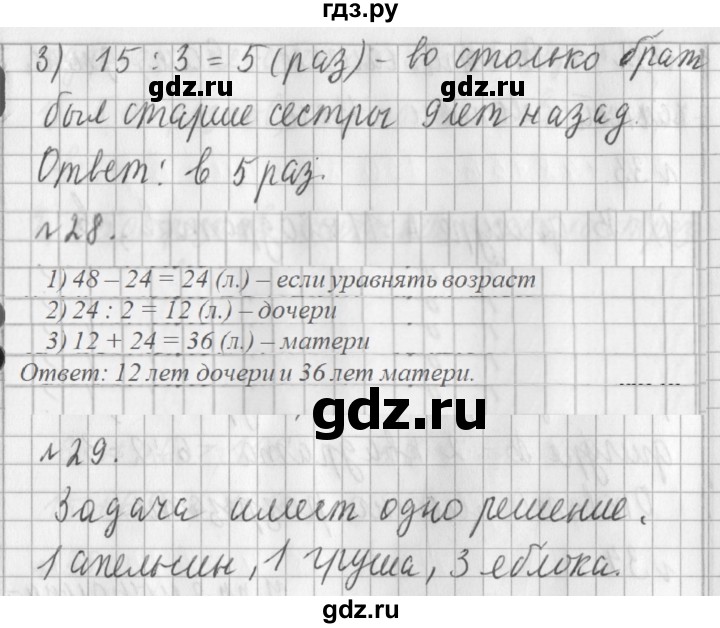 гдз.ру
3) 15 : 3 = 5 (раз) - во столько брат
gdz.ru gdz.ru
был старше сестры 9 лет назад.
Ответ: в 5 раз.
№28.
1) 48 – 24 = 24 (л.) – если уравнять возраст
2) 24 : 2 = 12 (л.) – дочери
3) 12 + 24 = 36 (л.) – матери
Ответ: 12 лет дочери и 36 лет матери.
gdz.ru
№29.
Задача имеет одно решение.
1 апельсин, 1 груша, 3 яблока.
gdz.ru